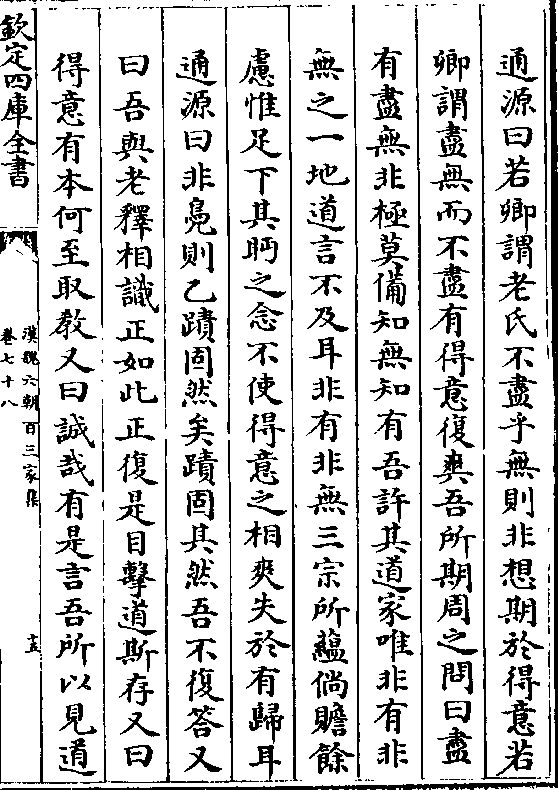 通源曰若卿謂老氏不盡乎無則非想期於得意若
卿謂盡無而不盡有得意復爽吾所期周之問曰盡
有盡無非極莫備知無知有吾許其道家唯非有非
無之一地道言不及耳非有非無三宗所蘊倘贍餘
慮惟足下其眄之念不使得意之相爽失於有歸耳
通源曰非鳧則乙蹟固然矣蹟固其然吾不復答又
曰吾與老釋相識正如此正復是目擊道斯存又曰
得意有本何至取教又曰誠哉有是言吾所以見道
欽定四庫全書
漢魏六朝百三家集
卷七十八
十五